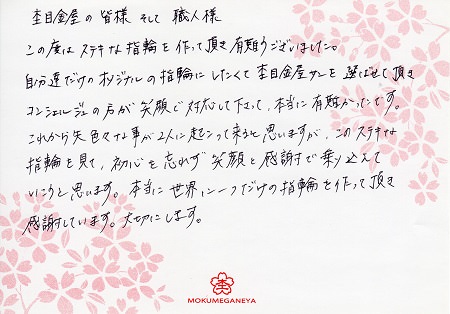 杢目金屋の皆様 そして 職人様
この度はステキな指輪を作って頂き有難うございました。
自分達だけのオリジナルの指輪にしたくて杢目金屋さんを選ばせて頂き
コンシェルジュの方が笑顔で対応して下さって、本当に有難かったです。
これから先色々な事が2人に起こって来ると思いますが、このステキな
指輪を見て、初心を忘れず笑顔と感謝で乗り込えて
いこうと思います。本当に世界に一つだけの指輪を作って頂き
感謝しています。大切にします。
杢
MOKUMEGANEYA